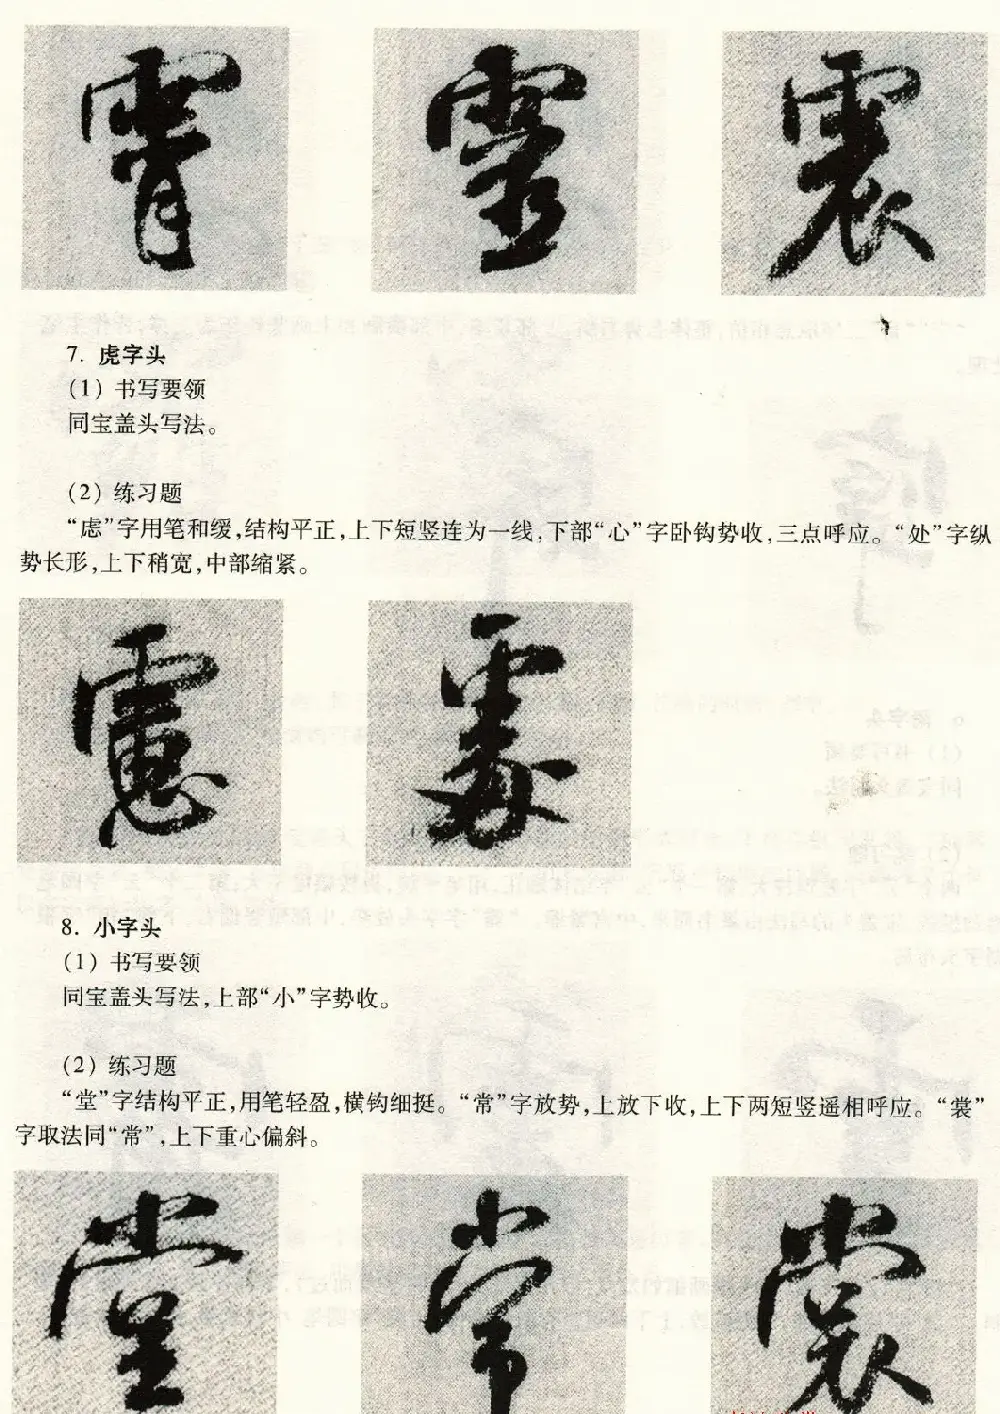 霄 雪 震
7. 虎字头
(1) 书写要领
同宝盖头写法。
(2) 练习题
“虑”字用笔和缓,结构平正,上下短竖连为一线,下部“心”字卧钩势收,三点呼应。“处”字纵
势长形,上下稍宽,中部缩紧。
慮 處
8. 小字头
(1) 书写要领
同宝盖头写法,上部“小”字势收。
(2) 练习题
“堂”字结构平正,用笔轻盈,横钩细挺。“常”字放势,上放下收,上下两短竖遥相呼应。“裳”
字取法同“常”,上下重心偏斜。
堂 常 裳